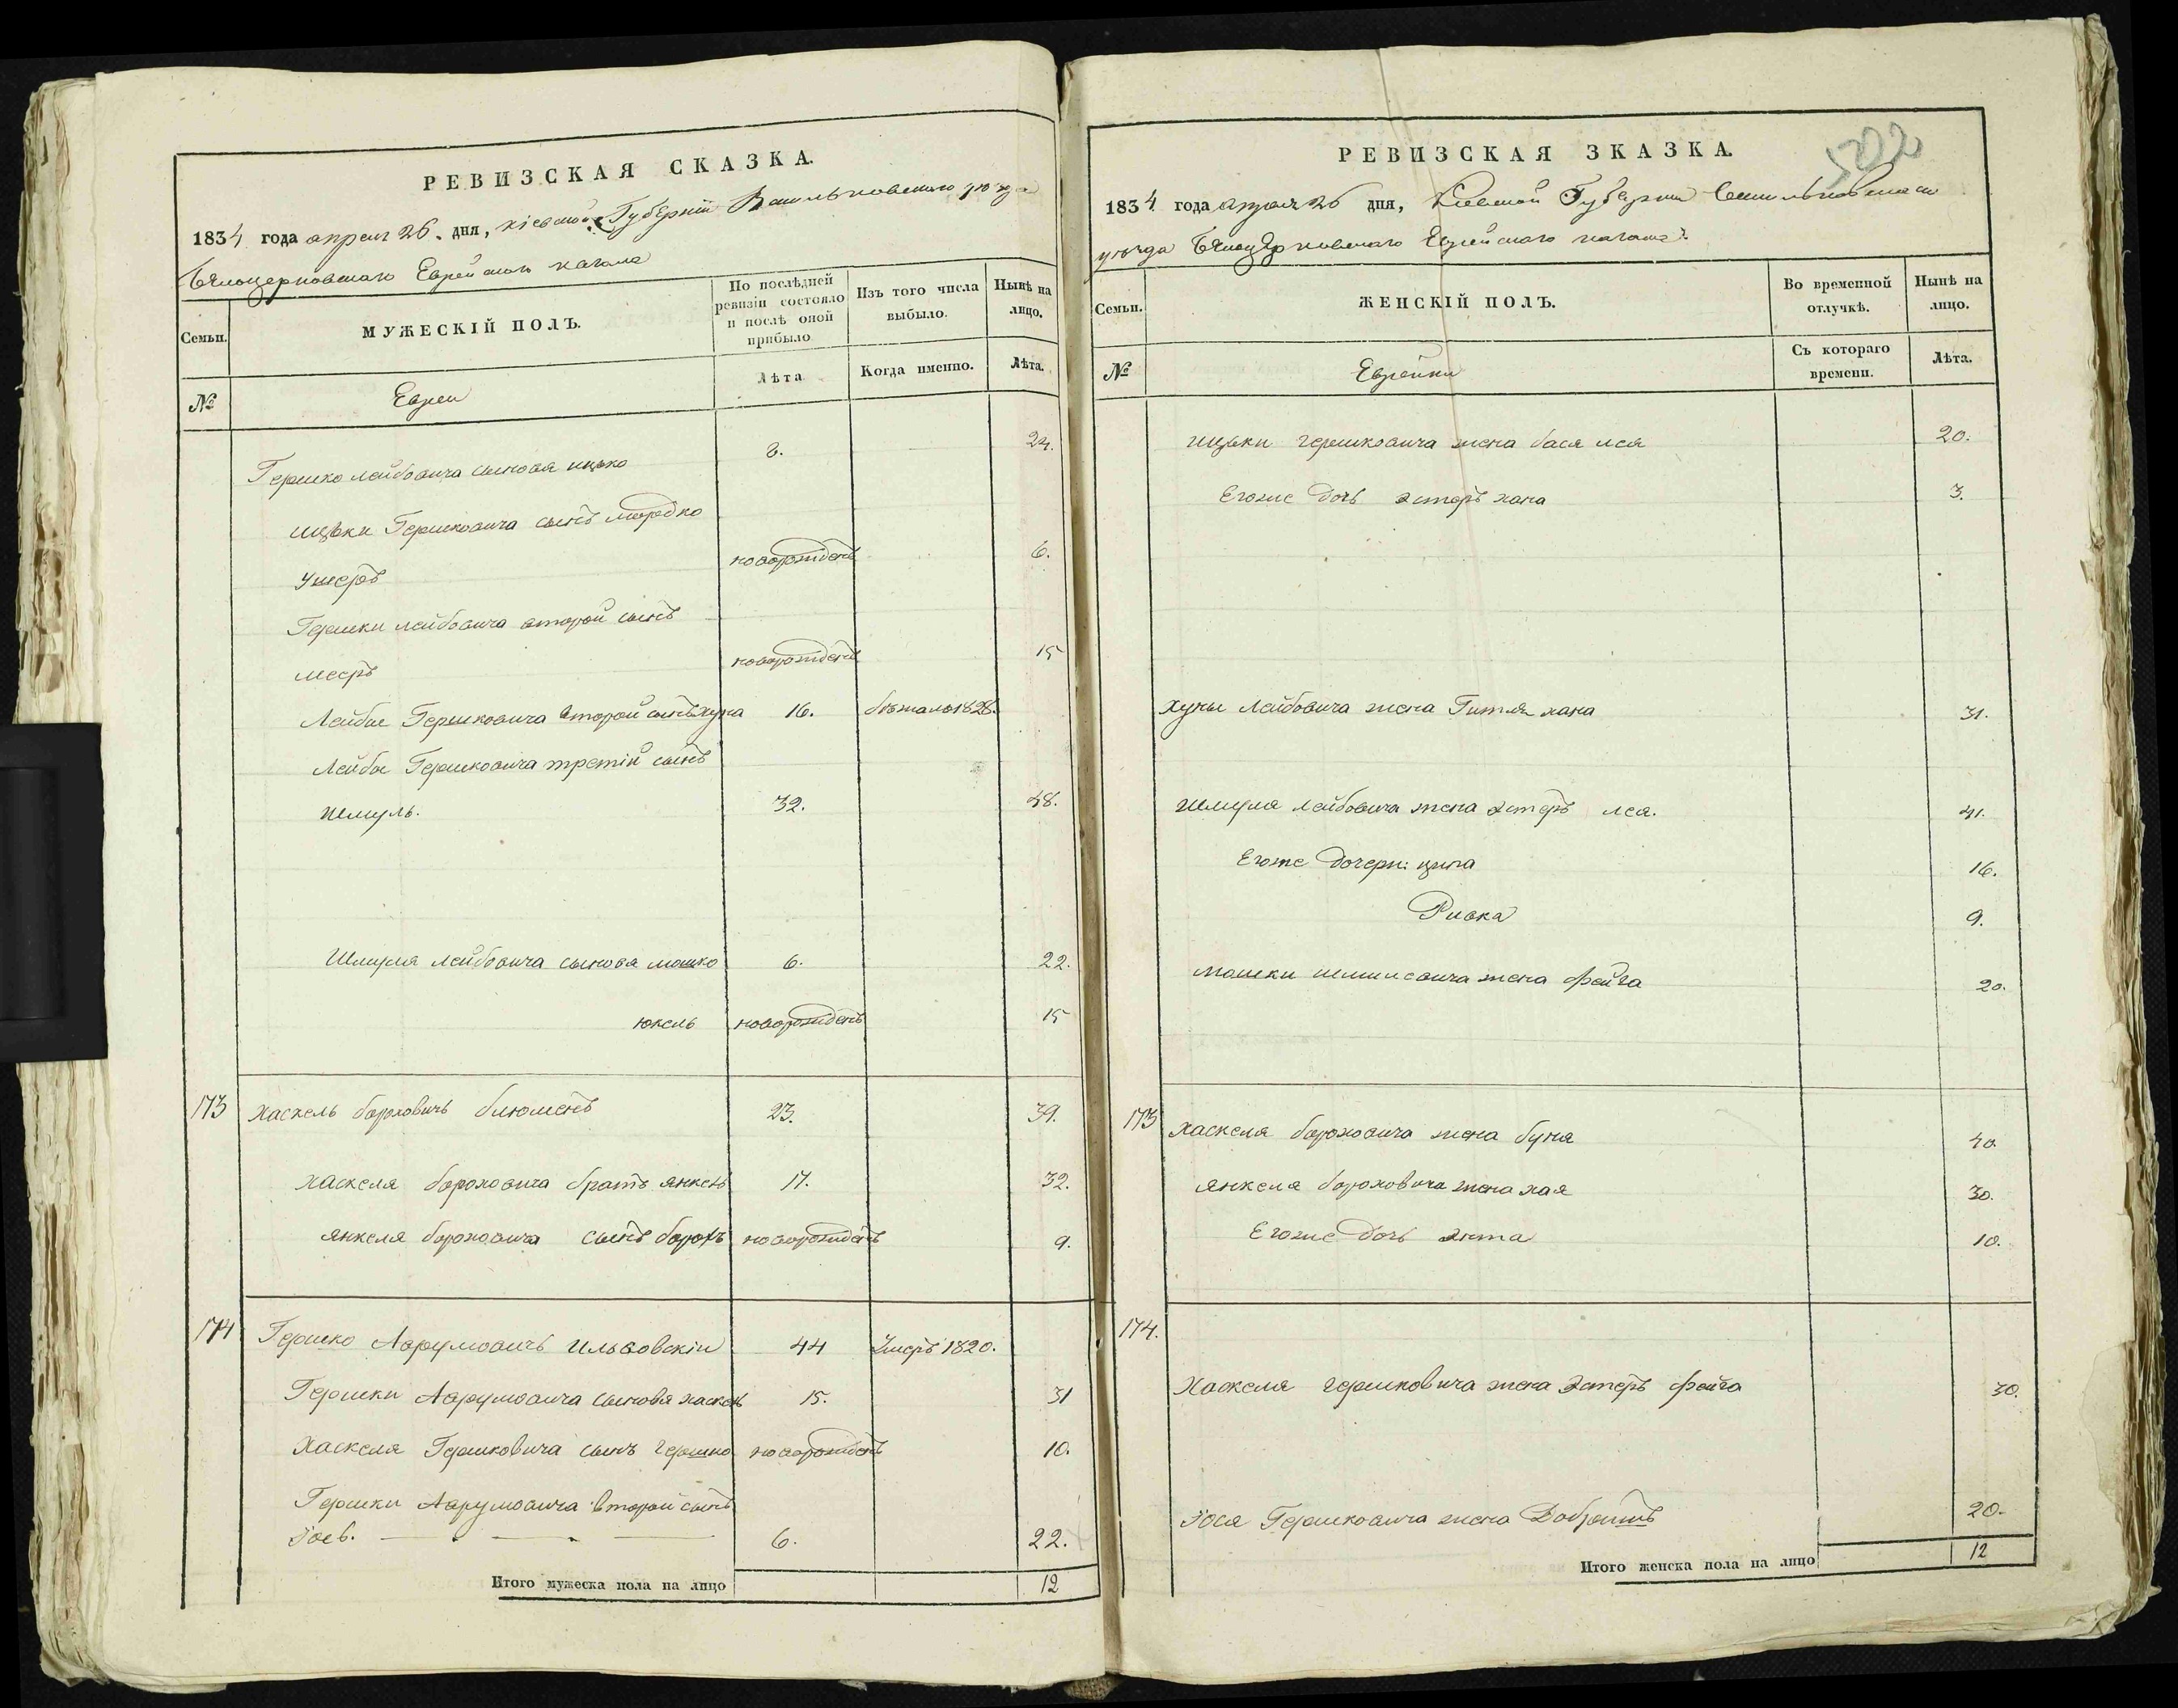 РЕВИЗСКАЯ СКАЗКА.
1834 года апреля 26. дня, Кіевской Губерніи Васильковского уѣзда
Бѣлоцерковскаго Еврейскаго кагала
Семьи.
МУЖЕСКІЙ ПОЛЪ.
По послѣдней ревизіи состояло и послѣ оной прибыло
Изъ того числа выбыло.
Нынѣ на лицо.
№
Евреи
Лѣта
Когда именно.
Лѣта.
Гершко Лейбовича сыновя ицько 8. 24.
ицьки Гершковича сынъ мордко
ушеръ новорожденъ 6.
Гершки лейбовича второй сынъ
мееръ новорожденъ 15
Лейбы Гершковича второй сынъ хуна 16. бежалъ 1828.
Лейбы Гершковича третій сынъ
Шмуль. 32. 48.
Шмуля лейбовича сыновя мошко 6. 22.
юкель новорожденъ 15
173 хаскель борховичъ блюменъ 23. 39.
хаскеля бороховича братъ янкель 17. 32.
янкеля бороховича сынъ борохъ новорожденъ 9.
174 Гершко Аврумовичъ Ильвовскіи 44 Умеръ 1820.
Гершки Аврумовича сыновя хаскель 15. 31
Хаскеля Гершковича сынъ гершко новорожденъ 10.
Гершки Аврумовича второй сынъ
Іось. 6. 22.
Итого мужеска пола на лицо 12
502
РЕВИЗСКАЯ ЗКАЗКА.
1834 года апреля 26 дня, Киевской Губернии Васильковскаго
уѣзда Бѣлоцерковскаго Еврейскаго кагала.
Семьи.
ЖЕНСКІЙ ПОЛЪ.
Во временной отлучкѣ.
Нынѣ на лицо.
№
Еврейки
Съ котораго времени.
Лѣта.
ицьки гершковича жена бася лея 20.
Егоже дочь эстеръ хана 3.
хуны Лейбовича жена Гитля хана 31.
Шмуля лейбовича жена эстеръ лея. 41.
Егоже дочери: ципа 16.
Ривка 9.
мошки шмилевича жена фейга 20.
173 хаскеля бороховича жена буня 40.
янкеля бороховича жена хая 30.
Егоже дочь энта 10.
174.
Хаскеля гершковича жена Эстеръ фейга 30.
Іося Гершковича жена Добришъ 20.
Итого женска пола на лицо 12